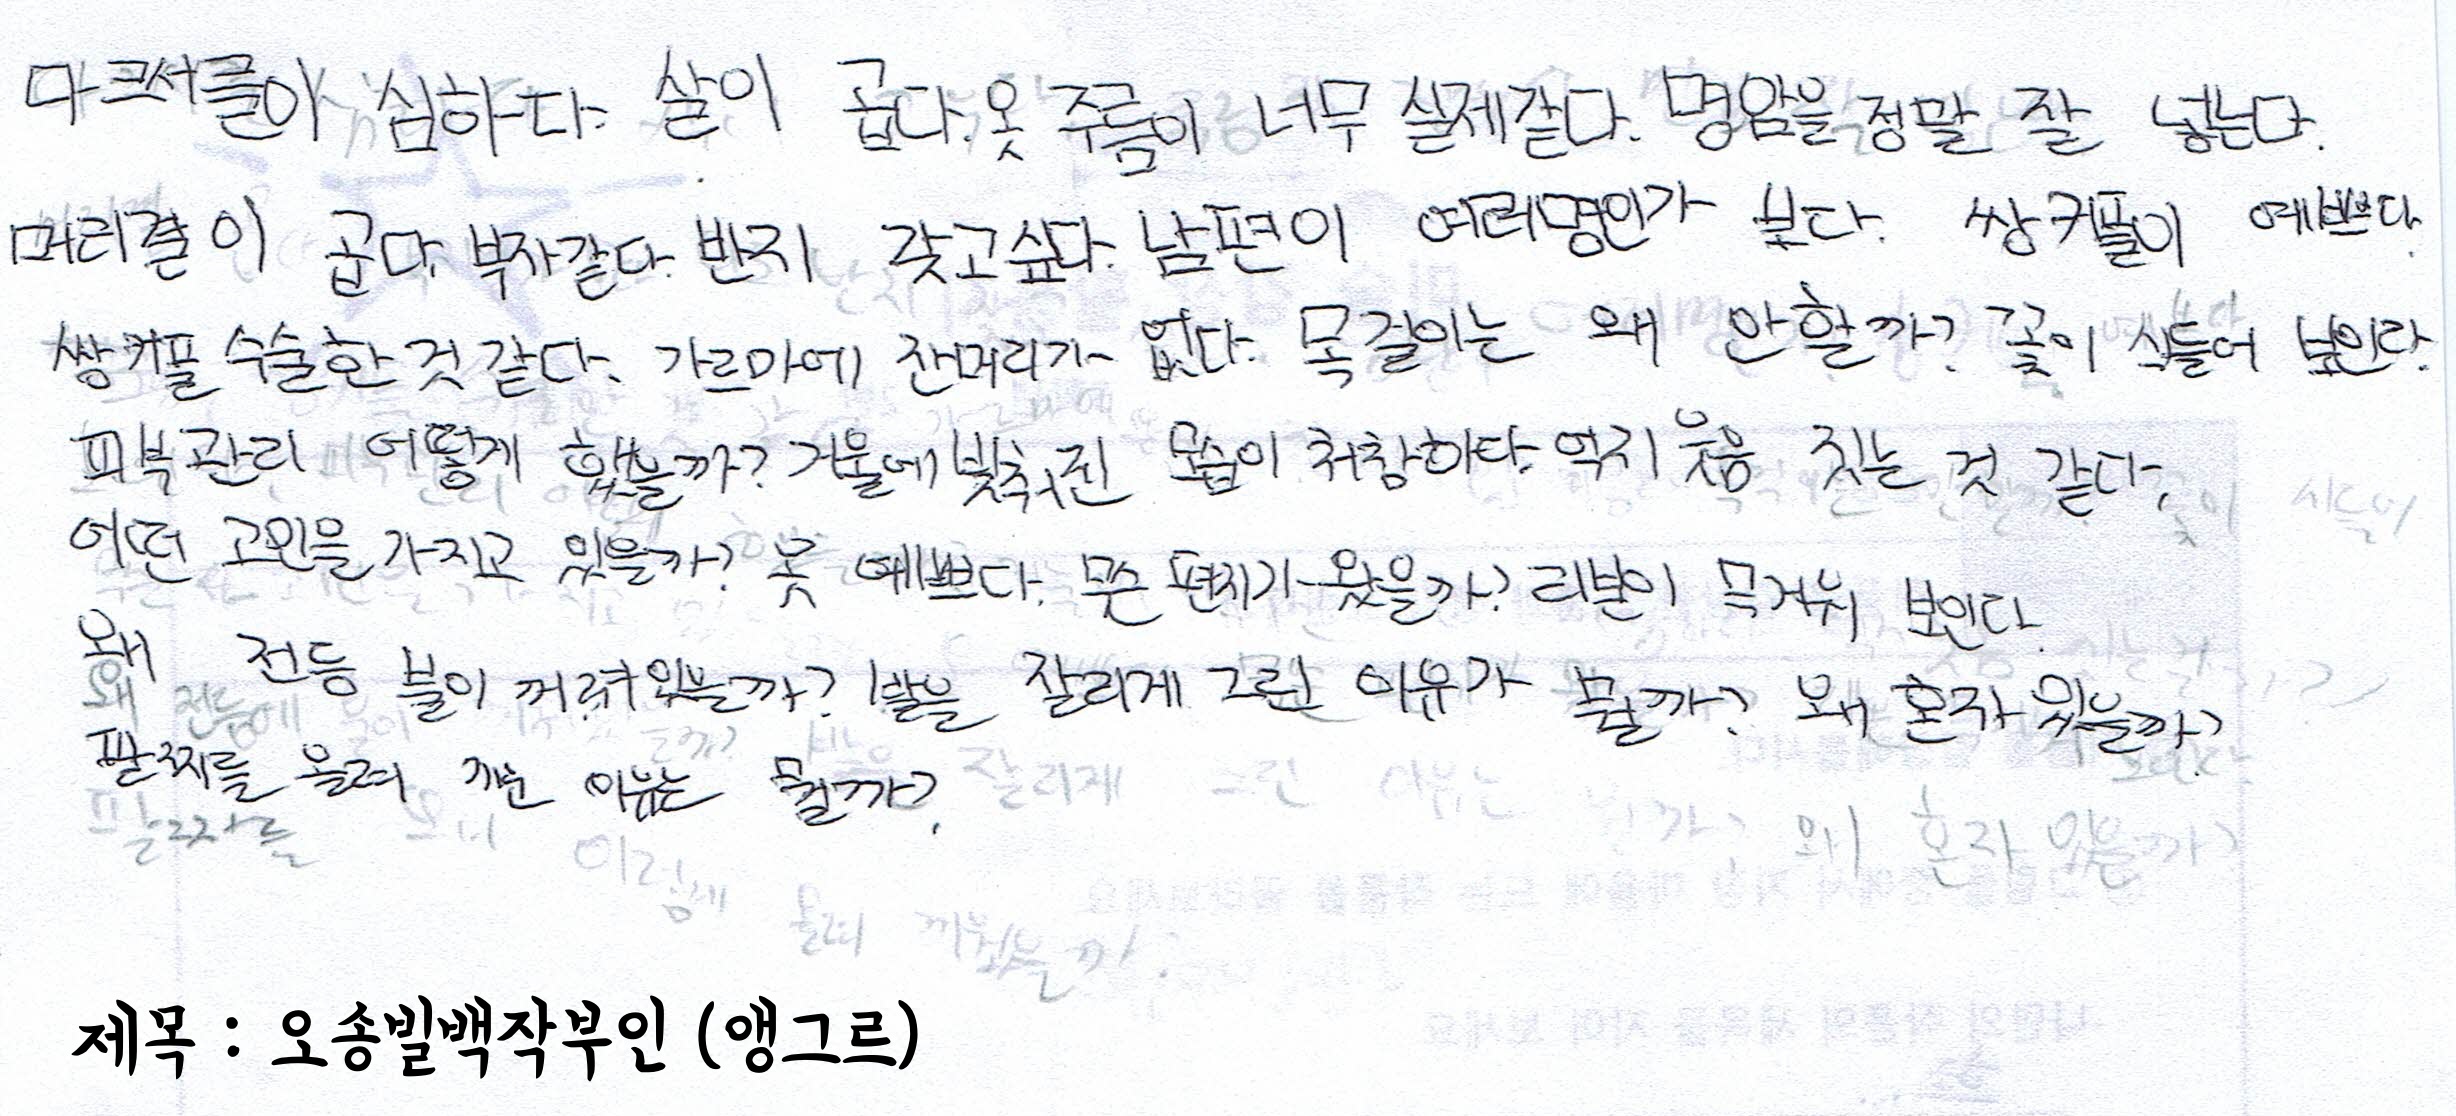 다크써클이 심하다. 살이 곱다. 옷 주름이 너무 실제같다. 명암을 정말 잘 넣는다.
머리결이 곱다. 부자같다. 반지 갖고싶다. 남편이 여러명인가 보다. 쌍커풀이 예쁘다.
쌍커풀 수술한 것 같다. 가르마에 잔머리가 없다. 목걸이는 왜 안할까? 꽃이 시들어 보인다.
피부관리 어떻게 했을까? 거울에 빛춰진 모습이 처참하다. 억지 웃음 짓는 것 같다.
어떤 고민을 가지고 있을까? 옷 예쁘다. 무슨 편지가 왔을까? 리본이 무거워 보인다.
왜 전등 불이 꺼져있을까? 발을 잘리게 그린 이유가 뭘까? 왜 혼자 있을까?
팔찌를 올려 낀 이유는 뭘까?
제목 : 오송빌백작부인 (앵그르)